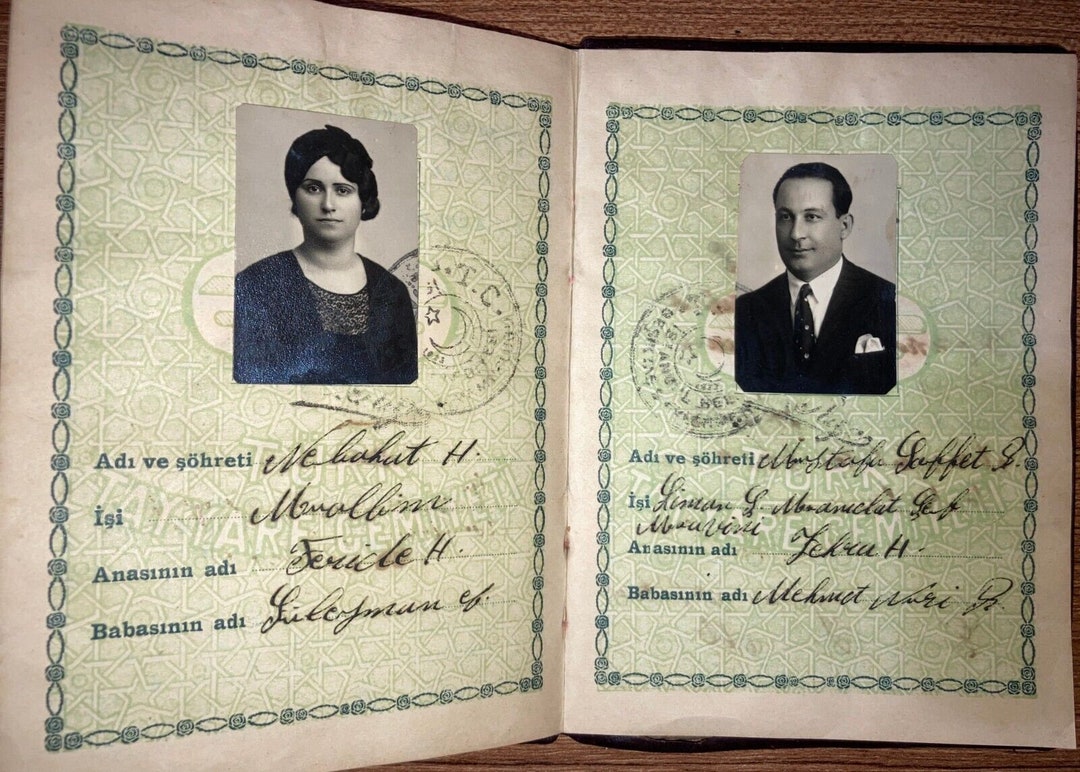 T.C.
1923
Adı ve şöhreti Nebahat H.
İşi Muallim
Anasının adı Feride H.
Babasının adı Süleyman ef.
Adı ve şöhreti Mustafa Saffet B.
İşi Liman Ş. Muamelat Şef
Muavini
Anasının adı Zehra H.
Babasının adı Mehmet Nuri B.